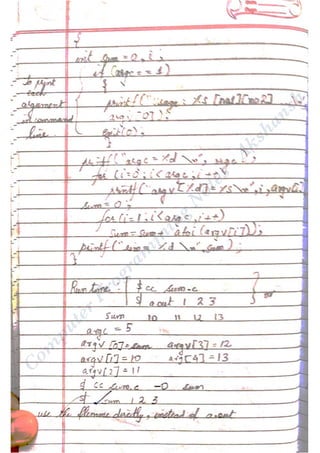 {
int sum = 0, i ;
if (argc == 1)
{
printf("usage: %s [no1][no2]
argv[0]);
exit(0);
}
To print
each
argument
in command
line
printf("argc = %d \n", argc);
for (i=0; i<argc; i++)
printf("argv[%d]=%s\n", i, argv[i]
sum = 0;
for (i=1; i<argc; i++)
sum = sum + atoi(argv[i]);
printf("sum = %d \n", sum);
}
Run time
$ cc sum.c
$ a.out 1 2 3
or
sum 10 11 12 13
argc = 5
argv[0]=sum argv[3]=12
argv[1]=10 argv[4]=13
argv[2]=11
$ cc sum.c -o sum
$ ./sum 1 2 3
use the filename directly, instead of a.out
Computer Programming